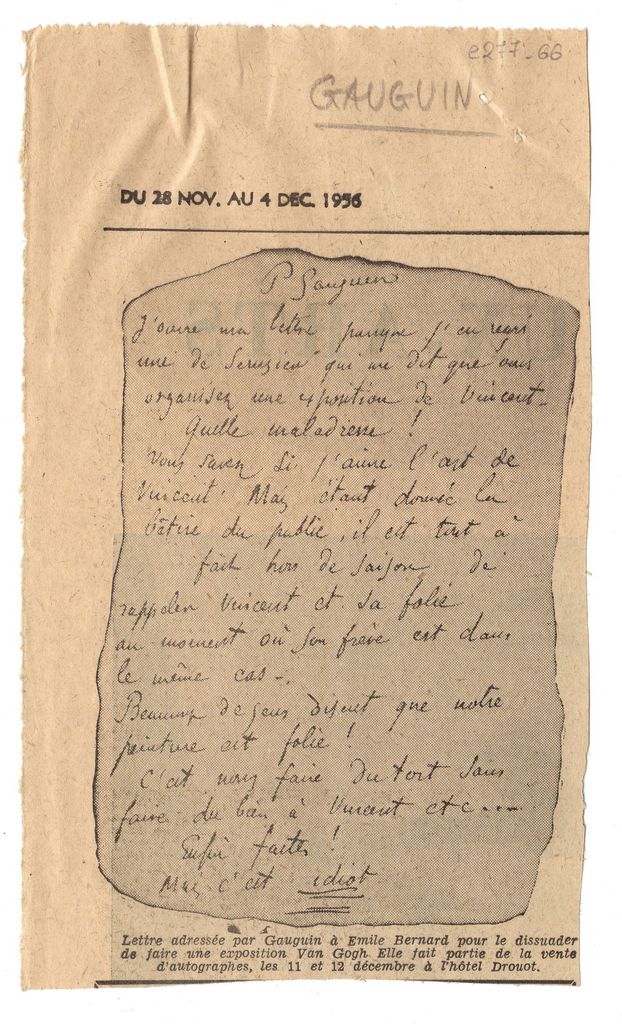 e277-66
GAUGUIN
DU 28 NOV. AU 4 DEC. 1956
P Gauguin
J'ouvre ma lettre parceque j'en reçois
une de Serusier qui me dit que vous
organisez une exposition de Vincent.
Quelle maladresse !
Vous savez si j'aime l'art de
Vincent. Mais étant donnée la
bêtise du public, il est tout à
fait hors de saison de
rappeler Vincent et sa folie
au moment où son frère est dans
le même cas.
Beaucoup de gens disent que notre
peinture est folie !
C'est nous faire du tort sans
faire du bien à Vincent etc....
Enfin faites !
Mais c'est idiot
Lettre adressée par Gauguin à Emile Bernard pour le dissuader
de faire une exposition Van Gogh Elle fait partie de la vente
d'autographes, les 11 et 12 décembre à l'hôtel Drouot.